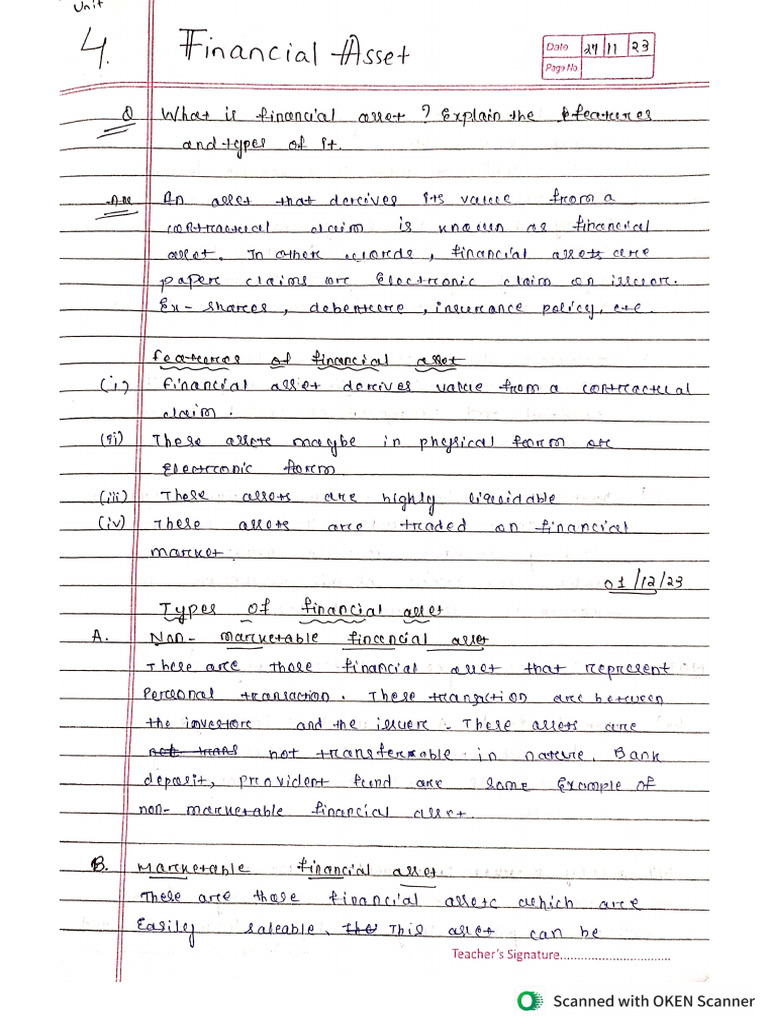 Unit
4. Financial Asset
Date 27 11 23
Page No
Q What is financial asset ? Explain the features
and types of it.
Ans An asset that derives its value from a
contractual claim is known as financial
asset. In other words, financial assets are
paper claims or Electronic claim on issuer.
Ex- shares, debenture, insurance policy, etc.
features of financial asset
(i) financial asset derives value from a contractual
claim.
(ii) These assets maybe in physical form or
Electronic form
(iii) These assets are highly liquidable
(iv) These assets are traded on financial
market.
01/12/23
Types of financial asset
A. Non- marketable financial asset
These are those financial asset that represent
Personal transaction. These transction are between
the investor and the issuer. These assets are
not trans not transferable in nature. Bank
deposit, provident fund are some Example of
non- marketable financial asset.
B. Marketable financial asset
These are those financial assetc which are
Easily saleable. the This asset can be
Teacher's Signature................................
Scanned with OKEN Scanner